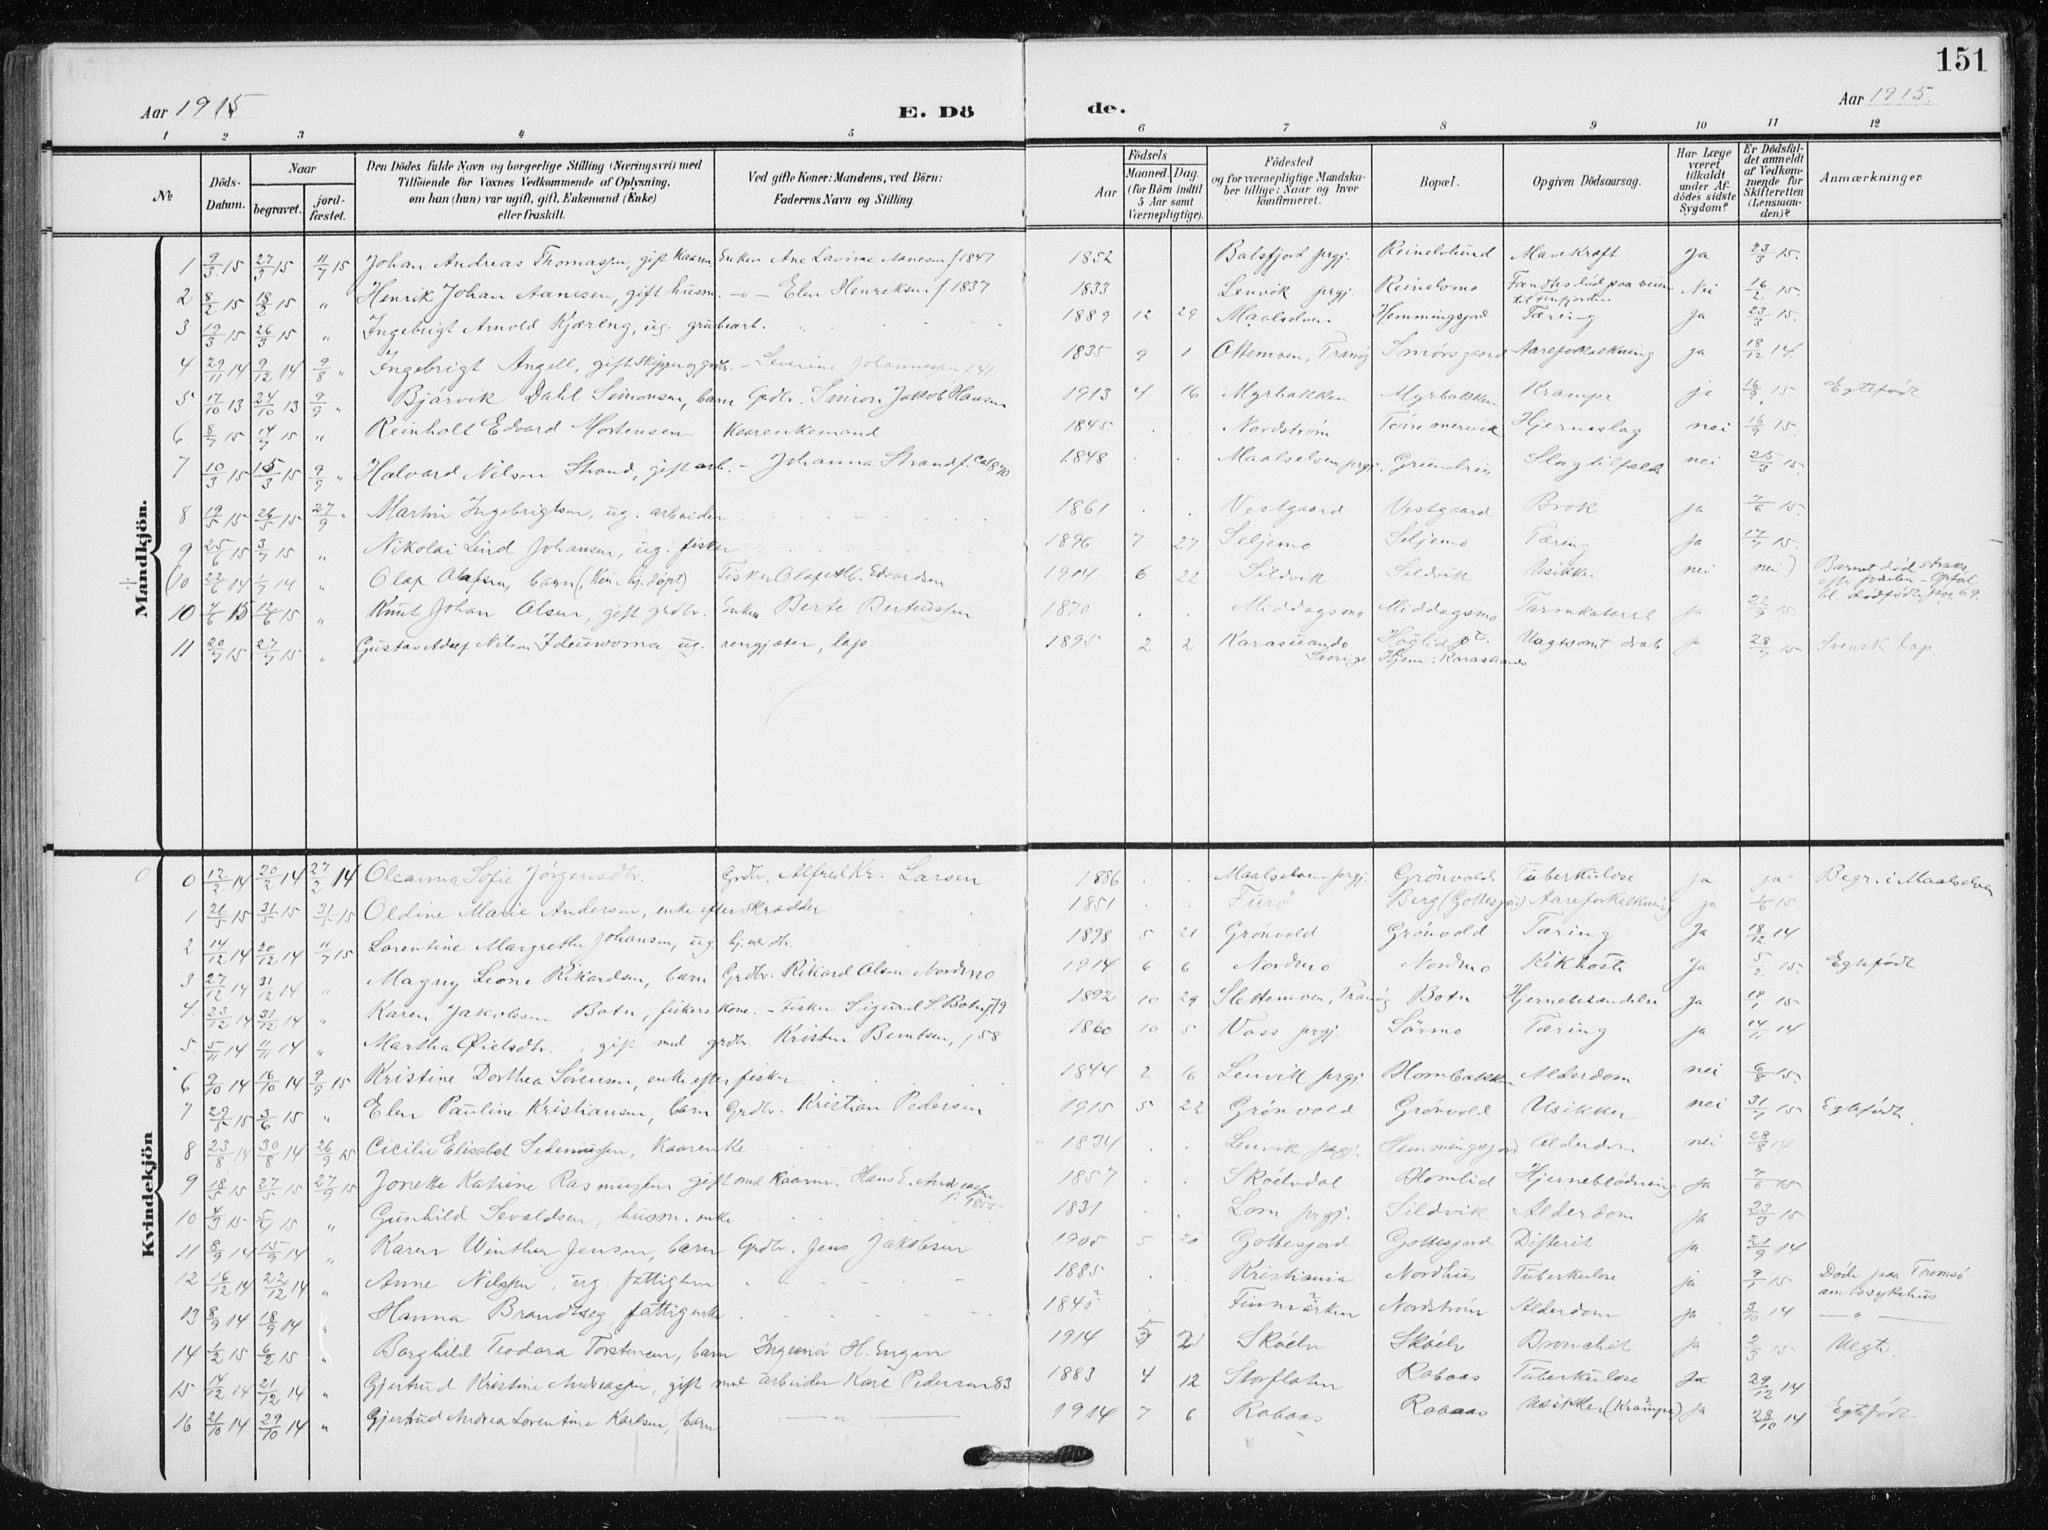 151
Aar 1915 E. Dö de. Aar 1915.
1 2 3 4 5 6 7 8 9 10 11 12
No
Döds-Datum.
Naar
begravet.
jord-fæstet.
Den Dödes fulde Navn og borgerlige Stilling (Næringsvei) med
Tilföiende for Voxnes Vedkommende af Oplysning,
om han (hun) var ugift, gift, Enkemand (Enke)
eller fraskilt.
Ved gifte Koner: Mandens, ved Börn:
Faderens Navn og Stilling.
Födsels
Aar
Maaned Dag
(for Börn indtil
5 Aar samt
Værnepligtige).
Födested
og for værnepligtige Mandska-
ber tillige: Naar og hvor
konfirmeret.
Bopæl.
Opgiven Dödsaarsag.
Har Læge
været
tilkaldt
under Af-
dödes sidste
Sygdom?
Er Dödsfal-
det anmeldt
af Vedkom-
mende for
Skifteretten
(Lensman-
den)?
Anmærkninger
Mandkjön.
1 9/3 15 27/3 15 11/7 15 Johan Andreas Thomassen, gift kaarm. Enken Ane Lavine f 1847 1852 Balsfjord prgj. Reinelvlund Marekraft Ja 23/3 15.
2 8/2 15 18/2 15 " Henrik Johan Aanesen, gift husm. - " - Elen Henriksen f 1837 1833 Lenvik prgj. Reinelvmo Fandtes död paa veien til Nei 16/2 15.
3 19/3 15 26/3 15 " Ingebrigt Arnold Kjæreng, ug. grubearb. 1889 12 29 Maalselven Hemmingsjord Tæring Ja 23/3 15.
4 29/11 14 9/12 14 9/8 " Ingebrigt Angell, gift Skipper og grdbr. - Severine Johannessen f. 41 1835 9 1 Tranöy Smörsgaard Aareforkalkning ja 18/12 14.
5 17/10 13 24/10 13 9/9 " Bjárvik Dahl Simonsen, barn Grdbr. Simon Jakob Hansen 1913 4 16 Myrbakken Myrbakken Krampe ja 15 Egtefödt
6 8/7 15 14/7 15 " Reinholt Edvard Mortensen kaarenkemand 1845 Nordström Hjerneslag nei 15.
7 10/3 15 15/3 15 9/9 " Halvard Nilsen Strand, gift arb. - Johanna Strand f. ca 1870 1848 Maalselven prgj. Grundreis Slagtilfælde nei 25/3 15.
8 19/5 15 26/5 15 27/9 " Martin Ingebrigtsen, ug. arbeider 1861 Vestgaard Vestgaard Brok ja 7/6 15.
9 25/6 15 3/7 15 " Nikolai Lind Johansen, ug. fisker 1896 7 27 Seljemo Seljemo Tæring ja 17/7 15.
(10 22/6 14 1/7 14 " Olaf Olafsen, barn (kun hj. döpt) Fisker Olaf Alb. Edvardsen 1914 6 22 Sildvik Sildvik Usikker nei nei) Barnet död straks efter födslen - Opföl. bl. dödfödte pag. 69.
10 7/6 15 " Knut Johan Olsen, gift grdbr. Enken Berte Berteussen 1870 Middagsmo Middagsmo Tarmkatarrh ja 15
11 20/7 15 27/7 15 " Gustav Adolf Nilsen ug. rengjæter, lap 1895 2 2 Karasuando Sverige Hjem: Karasuando Uagtsomt drab ja 28/7 15 Svensk lap.
Kvindekjön
0 12/2 14 20/2 14 27/2 14 Oleanna Sofie Jörgensdtr. Grdbr. Alfred Kr. Larsen 1886 Maalselven prgj. Grönvold. Tuberkulose ja ja Begr. i Maalselven
1 26/5 15 31/5 15 31/5 15 Oldine Marie Andersen, enke efter skrædder 1851 Furö Berg (Gottesjord) Aareforkalkning ja 1/6 15.
2 14/12 14 20/12 14 11/7 15 Lorentine Margrethe Johansen, ug. hj.vær. dtr. 1898 5 21 Grönvold Grönvold Tæring Ja 18/12 14
3 27/12 14 31/12 14 " Magny Leone Rikardsen, barn Grdbr. Rikard Olsen Nordmo 1914 6 6 Nordmo Nordmo Kikhoste Ja 5/2 15. Egtefödt
4. 23/12 14 31/12 14 " Karen Jakobsen Botn, fiskers kone. - Fisker Sigurd S. Botn f 79 1892 10 29 Slettemoen, Tranöy Botn Hjernebetændelse ja 15
5. 5/11 14 11/11 14 " Martha gift med grdbr. Kristen Berntsen, f 58 1860 10 5 Voss prgj. Sörmo Tæring ja 14
6 9/10 14 16/10 14 9/9 15 Kristine Dorthea Sörensen, enke efter fisker 1844 2 16 Lenvik prgj. Blombakken Alderdom nei 6/8 15.
7 29/5 15 3/6 15 " Elen Pauline Kristiansen, barn Grdbr. Kristian Pedersen 1915 5 22 Grönvold Grönvold Usikker nei 31/7 15 Egtefödt
8 23/8 14 30/8 14 26/9 15 Cicilie Elisabet Kaarenke 1834 Lenvik prgj. Hemmingsjord Alderdom nei 28/8 14
9 18/5 15 27/5 15 27/9 15 Jonette Katrine Rasmussen gift med kaarm. Hans E. Andreassen f. 1855 1857 Sköelvdal Blomlid Hjerneblödning ja 7/6 15
10 15 15 " Gunhild Sevaldsen, husm. enke 1831 Lom prgj. Sildvik Alderdom ja 23/3 15
11 8/9 14 15/9 14 " Karen Winther Jensen, barn Grdbr. Jens Jakobsen 1905 5 Gottesjord Gottesjord Difterit ja 21/9 14
12 16/12 14 22/12 14 " Anne Nilssen, ug. fattiglem 1885 Kristiania Nordhus Tuberkulose ja 9/1 15 Döde paa Tromsö amtssykehus
13 8/9 14 18/9 14 Hanna fattigenke 1840? Finmarken Nordström Alderdom ja 3/10 14 - " -
14 1/2 15 6/2 15 " Borghild Teodora Torstensen, barn Ingeniör H. Engen 1914 5 21 Sköeln Sköeln Bronchit ja 2/3 15 Uegte
15 14/12 14 21/12 14 " Gjertrud Kristine Andreassen, gift med arbeider Karl Pedersen 83 1883 4 12 Storfloten Rabaas Tuberkulose Ja 29/12 14
16 21/10 14 29/10 14 " Gjertrud Andrea Lorentine Karlsen, barn - " - 1914 7 6 Rabaas Rabaas Usikker (Krampe?) Ja 28/10 14 Egtefödt